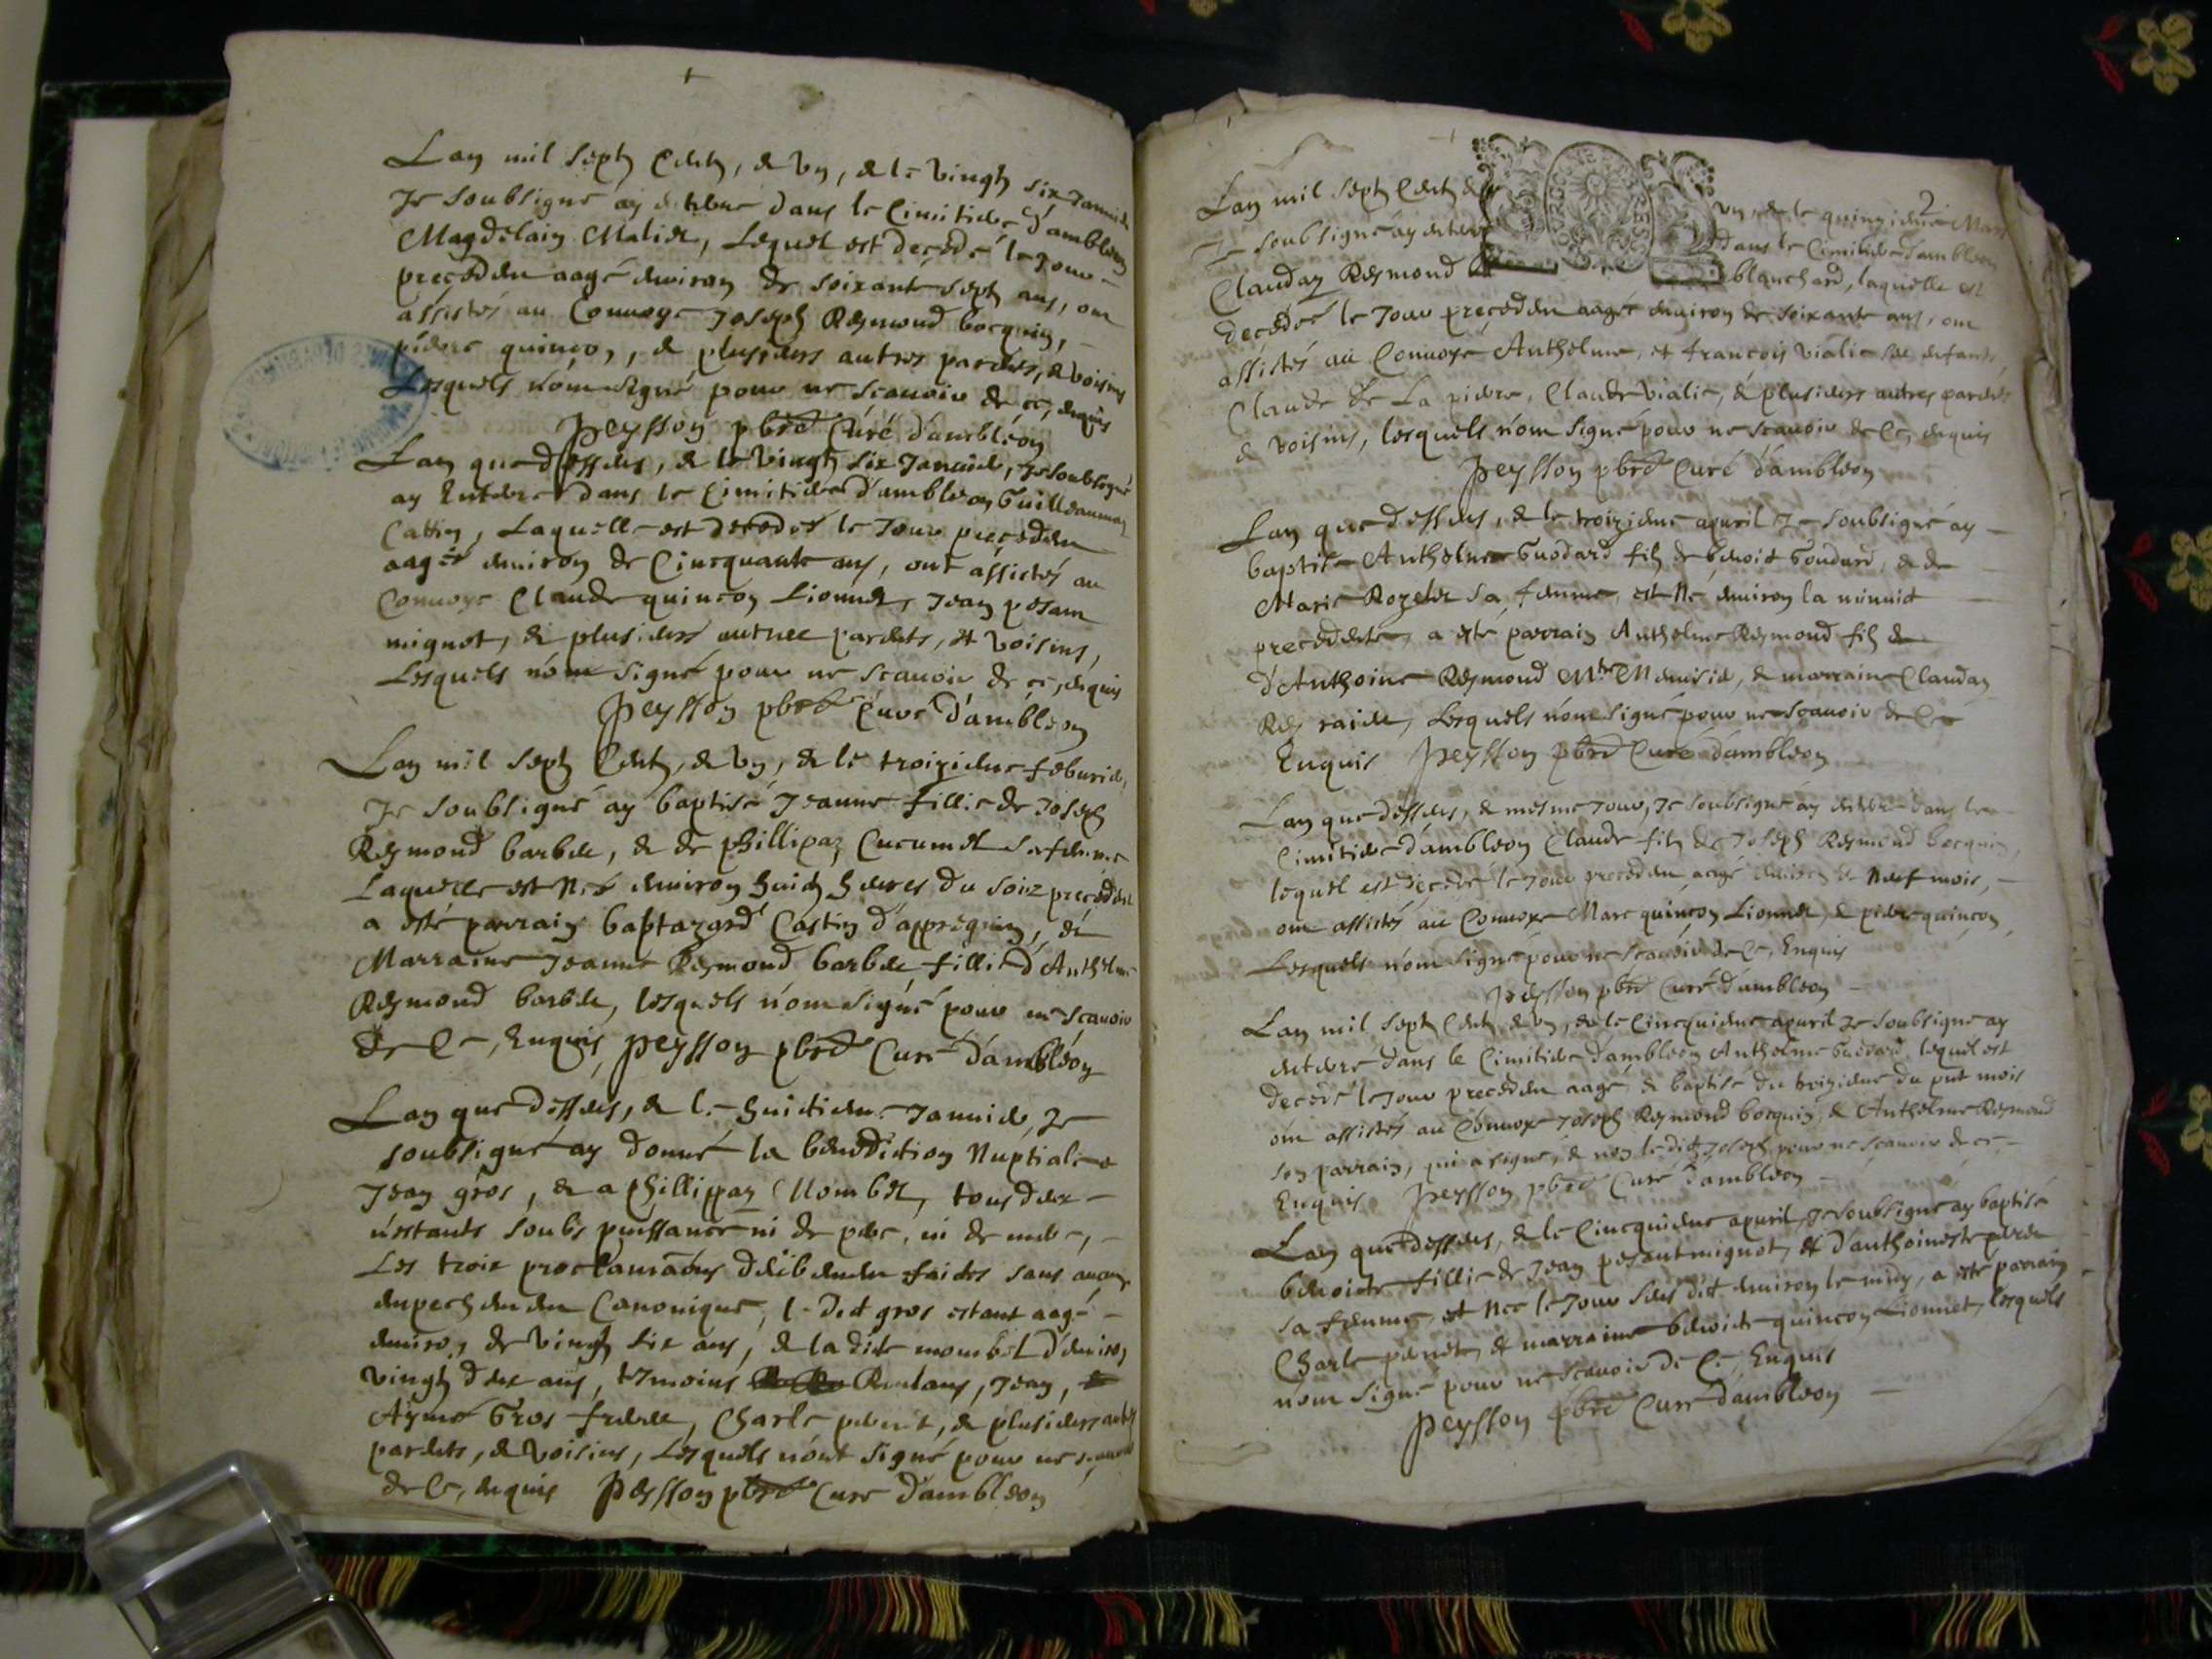 Lan mil sept cents, & un, & le vingt six Janvier
Je soubsigné ay enterré dans le Cimitiere d'ambleon
Magdelain Malier, Lequel est decedé le Jour
precedent aagé environ de soixante sept ans, ont
assistés au Convoye Joseph Reymond bocquin,
pierre quincon, & plusieurs autres parents, & voisins
Lesquels n'ont signé pour ne scavoir de ce, enquis
Peysson pbre Curé d'ambléon
Lan que dessus, & le vingt six Janvier, Je soubsigné
ay Enterré dans le Cimitiere d'ambleon Guilleaumaz
Cattin, Laquelle est decedée le Jour precedent
aagée environ de Cincquante ans, ont assistés au
Convoye Claude quincon Lionnet, Jean pesant
mignot, & plusieurs autres parents, et voisins,
Lesquels n'ont signé pour ne scavoir de ce, enquis
Peysson pbre Curé d'ambléon
Lan mil sept Cents, & un, & le troizieme feburier,
Je soubsigné ay baptisé Jeanne fillie de Joseph
Reymond barbier, & de phillipaz Cucumel sa femme
Laquelle est Née environ huict heures du soir precedent
a esté parrain baltazard Castin d'appregnin, &
Marraine Jeanne Reymond barbier fillie d'Anthelme
Reymond barbier, lesquels n'ont signé pour ne scavoir
de Ce, Enquis, Peysson pbre Curé d'ambléon
Lan que dessus, & le huictieme Janvier, Je
soubsigné ay donné la benediction Nuptiale a
Jean gros, & a phillippaz Mombel, tous deux
n'estants soubs puissance ni de pere, ni de mere,
Les trois proclamaôns deüement faictes sans aucun
empechement Canonique, le dit gros estant aagé
environ de vingt six ans, & la dite mombel d'environ
vingt deux ans, tesmoins Rolans, Jean,
Aymé Gros freres, Charle pernet, & plusieurs autres
parents, & voisins, Lesquels n'ont signé pour ne scavoir
de Ce, enquis Peysson pbre Curé d'ambleon
2
Lan mil sept Cents & un, & le quinzieme Mars
Je soubsigné ay enterré dans le Cimitiere d'ambleon
Claudaz Reymond blanchard, laquelle est
decedée le Jour precedent aagée environ de soixante ans, ont
assistés au Convoye Anthelme, et françois vialie ses enfants,
Claude de La pierre, Claude vialie, & plusieurs autres parents
& voisins, lesquels n'ont signé pour ne scavoir de Ce, enquis
Peysson pbre Curé d'ambleon
Lan que dessus, & le troizieme apvril Je soubsigné ay
baptisé Anthelme Guodard filz de benoit Goudard, & de
Marie Rozelet sa femme, est Né environ la minuit
precedente, a esté parrain Anthelme Reymond filz
d'Anthoine Reymond Mtre Menusier, & marraine Claudaz
Rey raide, Lesquels n'ont signé pour ne scavoir de Ce
Enquis Peysson pbre Curé d'ambleon
Lan que dessus, & mesme Jour, Je soubsigné ay enterré dans le
Cimitiere d'ambleon Claude filz de Joseph Reymond bocquin,
lequel est decedé le Jour precedent aagé environ de Neuf mois,
ont assistés au Convoye Marc quincon Lionnet, & pierre quincon,
Lesquels n'ont signé pour ne scavoir de Ce, Enquis
Peysson pbre Curé d'ambleon
Lan mil sept Cents & un, & le Cincquieme apvril Je soubsigné ay
enterré dans le Cimitiere d'ambleon Anthelme Guodard, lequel est
decedé le Jour precedent aagé, & baptisé du troizieme du pnt mois
ont assistés au Convoye Joseph Reymond bocquin, & Anthelme Reymond
son parrain, qui a signé, & non ledit Joseph pour ne scavoir de ce
Enquis Peysson pbre Curé d'ambleon
Lan que dessus, & le Cincquieme apvril, Je soubsigné ay baptisé
benoite fillie de Jean pesant mignot, & d'anthoinette
sa femme, est Née le Jour sus dit environ le midy, a esté parrain
Charle pernet, & marraine benoite quincon Lionnet, lesquels
n'ont signé pour ne scavoir de Ce, Enquis
Peysson pbre Curé d'ambleon